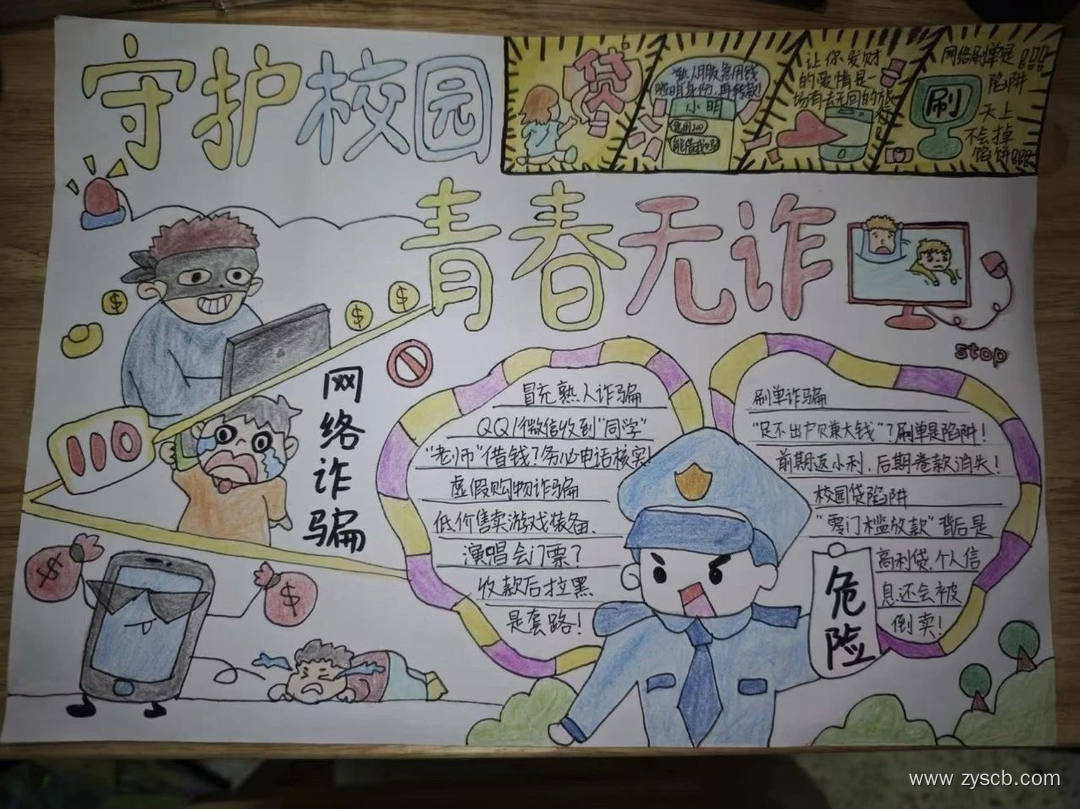 守护校园
贷
熟人用服急用钱
小明
让你发财
的爱情是一
场有去无回的旅
网络刷单是
陷阱
刷
天上
不会掉
馅饼
青春无诈
stop
网络诈骗
110
冒充熟人诈骗
QQ/微信收到“同学”
“老师”借钱?务必电话核实!
虚假购物诈骗
低价售卖游戏装备、
演唱会门票?
收款后拉黑
是套路!
刷单诈骗
“足不出户赚大钱”?刷单是陷阱!
前期返小利,后期卷款消失!
校园贷陷阱
“零门槛放款”背后是
高利贷,个人信
息还会被
倒卖!
危险
$
$
$
$
$
www.zyscb.com